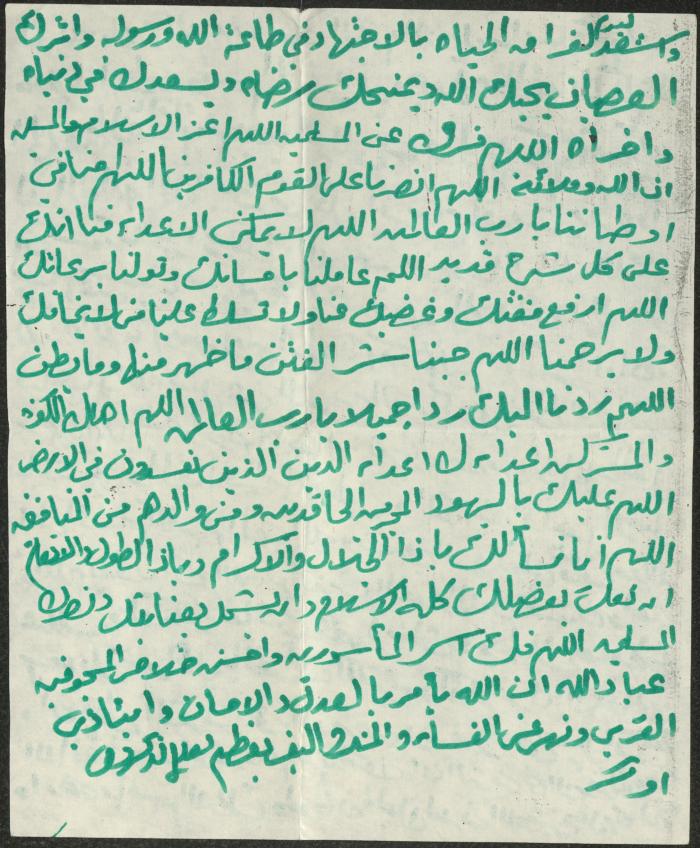 واستفد لفراه الحياه بالاجتهاد في طاعة الله ورسوله واترك
العصيان يحبك الله ويمنحك رضاه ويسعدك في دنياه
واخراه اللهم فرج عن المسلمين اللهم اعز الاسلام والمسلمين
اللهم انصرنا على القوم الكافرين اللهم امنا في
اوطاننا يا رب العالمين اللهم لا تمكن الاعداء منا انك
على كل شيء قدير اللهم عاملنا باحسانك وتولنا برعايتك
اللهم ارفع مقتك وغضبك عنا ولا تسلط علينا من لا يخافك
ولا يرحمنا اللهم جنبنا شر الفتن ما ظهر منها وما بطن
اللهم ردنا اليك ردا جميلا يا رب العالمين اللهم اهلك الكفرة
والمشركين اعدائك اعداء الدين الذين يفسدون في الارض
اللهم عليك باليهود المجرمين الحاقدين ومن والاهم من المنافقين
اللهم انا نسألك يا ذا الجلال والاكرام ويا ذا الطول والانعام
ان تعلي بفضلك كلمة الاسلام وان تشمل بعنايتك ونصرك
المسلمين اللهم فك اسر المأسورين واحسن خلاص المسجونين
عباد الله ان الله يأمر بالعدل والاحسان وايتاء ذي
القربى وينهى عن الفحشاء والمنكر والبغي يعظكم لعلكم تذكرون